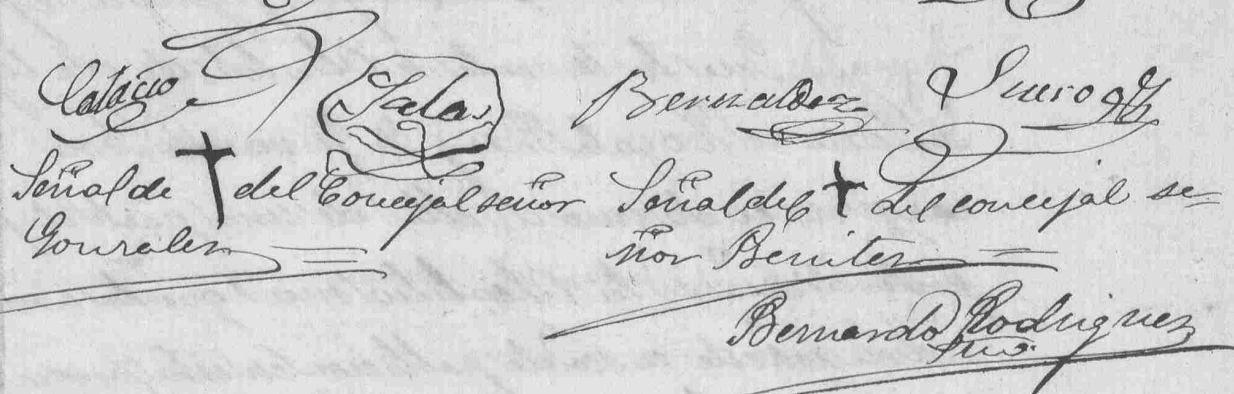 Palacio Sala Bernaldez Suero
Señal de † del Concejal señor
Gonzalez
Señal de † del concejal se=
ñor Benitez
Bernardo Rodriguez
Srio.